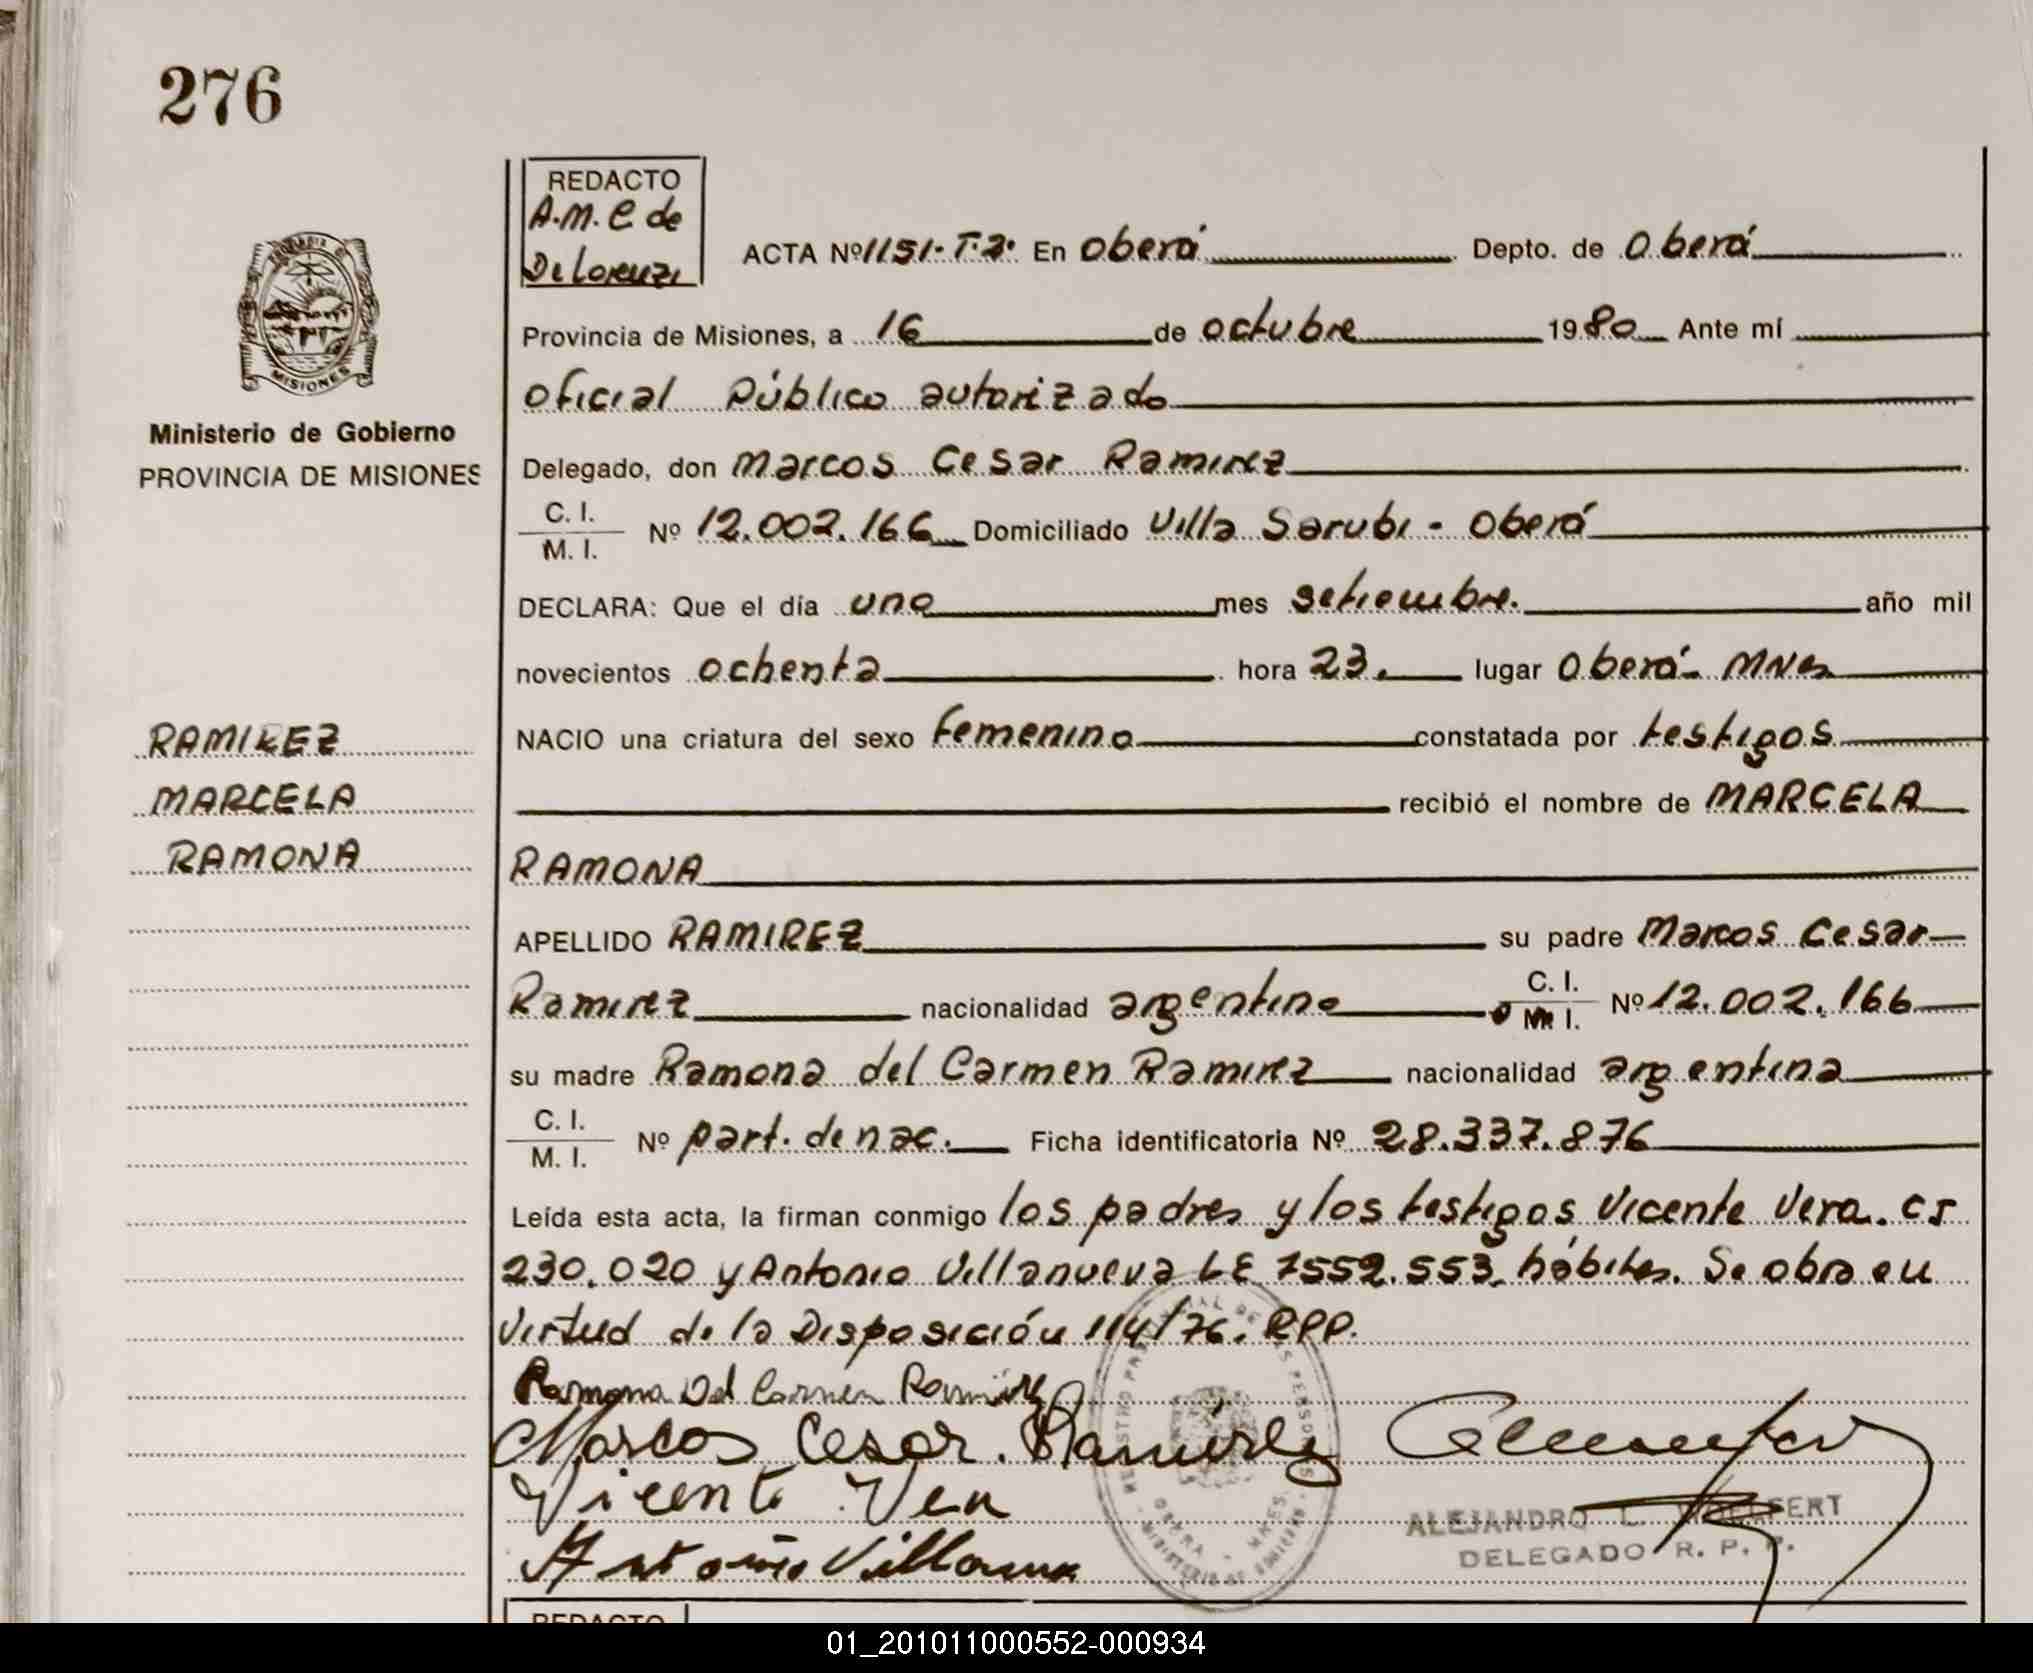 276
REDACTO
A.M.C de
De Lorenzi
ACTA Nº 1151-T-3º En Oberá Depto. de Oberá
Provincia de Misiones, a 16 de octubre 1980 Ante mí
Oficial Público autorizado
MISIONES
Ministerio de Gobierno
PROVINCIA DE MISIONES
Delegado, don Marcos Cesar Ramirez
C. I.
M. I. Nº 12.002.166 Domiciliado Villa Sarubi - Oberá
DECLARA: Que el día uno mes setiembre. año mil
novecientos ochenta hora 23. lugar Oberá- Mnes
RAMIREZ
MARCELA
RAMONA
NACIO una criatura del sexo femenino constatada por testigos
recibió el nombre de MARCELA
RAMONA
APELLIDO RAMIREZ su padre Marcos Cesar
Ramirez nacionalidad argentino C. I.
M. I. Nº 12.002.166
su madre Ramona del Carmen Ramirez nacionalidad argentina
C. I.
M. I. Nº part. de nac. Ficha identificatoria Nº 28.337.876
Leída esta acta, la firman conmigo los padres y los testigos Vicente Vera. CI
230.020 y Antonio Villanueva LE 7552.553. hábiles. Se obra en
virtud de la Disposición 114/76. RPP.
Ramona Del Carmen Ramirez
Marcos Cesar. Ramirez
Vicente Vera
Antonio Villanueva
ALEJANDRO L. WOELFERT
DELEGADO R. P. P.
REDACTO
01_201011000552-000934